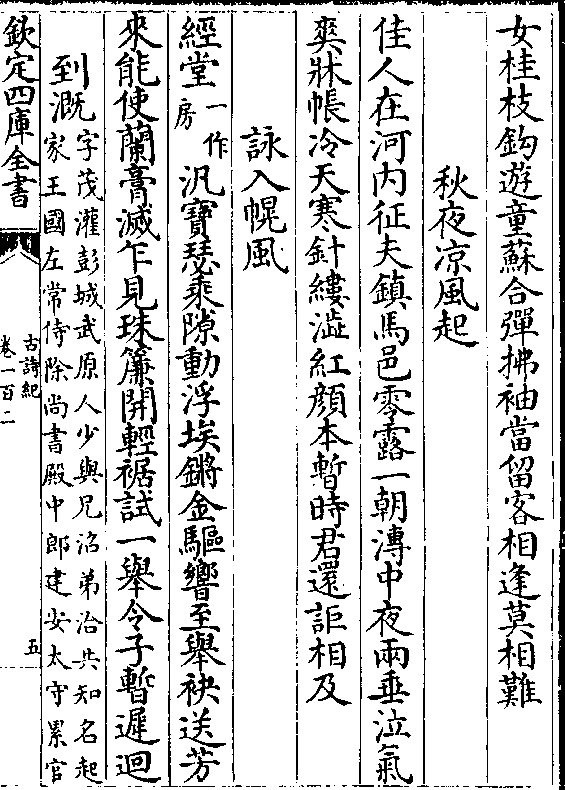 女桂枝鈎遊童蘇合彈拂袖當留客相逢莫相難
秋夜凉風起
佳人在河内征夫鎮馬邑零露一朝漙中夜兩垂泣氣
爽牀帳冷天寒針縷澁紅顔本暫時君還詎相及
詠入幌風
經堂一作房汎寶瑟乘隙動浮埃鏘金驅響至舉袂送芳
來能使蘭膏滅乍見珠簾開輕裾試一舉令子暫遲迴
到溉字茂灌彭城武原人少與兄沼弟洽共知名起
家王國左常侍除尚書殿中郎建安太守累官
欽定四庫全書
古詩紀
卷一百二
五